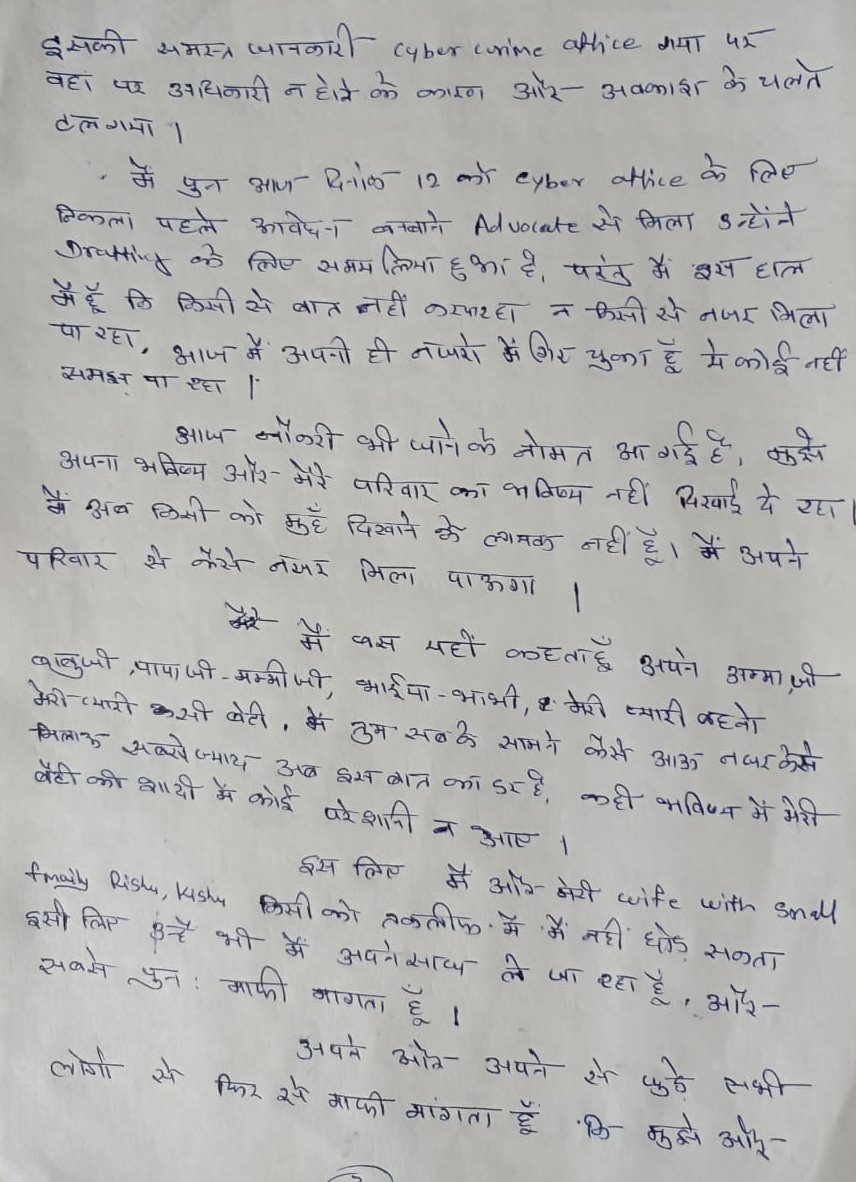 इसकी समस्त जानकारी cyber crime office गया पर
वहां पर अधिकारी न होने के कारण और अवकाश के चलते
टल गया ।
मैं पुन आज दिनांक 12 को cyber office के लिए
निकला पहले आवेदन बनवाने Advocate से मिला उन्होंने
Drafting के लिए समय लिया हुआ है, परंतु मैं इस हाल
में हूँ कि किसी से बात नहीं कर पा रहा न किसी से नजर मिला
पा रहा, आज मैं अपनी ही नजरो में गिर चुका हूँ ये कोई नहीं
समझ पा रहा ।
आज नौकरी भी जाने के नोमत आ गई है, मुझे
अपना भविष्य और मेरे परिवार का भविष्य नहीं दिखाई दे रहा ।
मैं अब किसी को मुहँ दिखाने के लायक नहीं हूँ । मैं अपने
परिवार से कैसे नजर मिला पाऊगा ।
मैं बस यहीं कहता हूँ अपने अम्मा जी
बाबुजी, पापाजी - मम्मीजी, भाईया - भाभी, मेरी प्यारी बहनो
मेरी प्यारी बेटी, में तुम सब के सामने कैसे आऊ नजर कैसे
मिलाऊ सबसे ज्याद अब इस बात का डर है, कही भविष्य में मेरी
बेटी की शादी में कोई परेशानी न आए ।
इस लिए मैं और मेरी wife with small
fmaily Rishu, Kishu किसी को तकलीफ में मैं नहीं छोड़ सकता
इसी लिए उन्हें भी मैं अपने साथ ले जा रहा हूँ, और
सबसे पुन: माफी मागता हूँ ।
अपने और अपने से जुड़े सभी
लोगो से फिर से माफी मांगता हूँ कि मुझे और